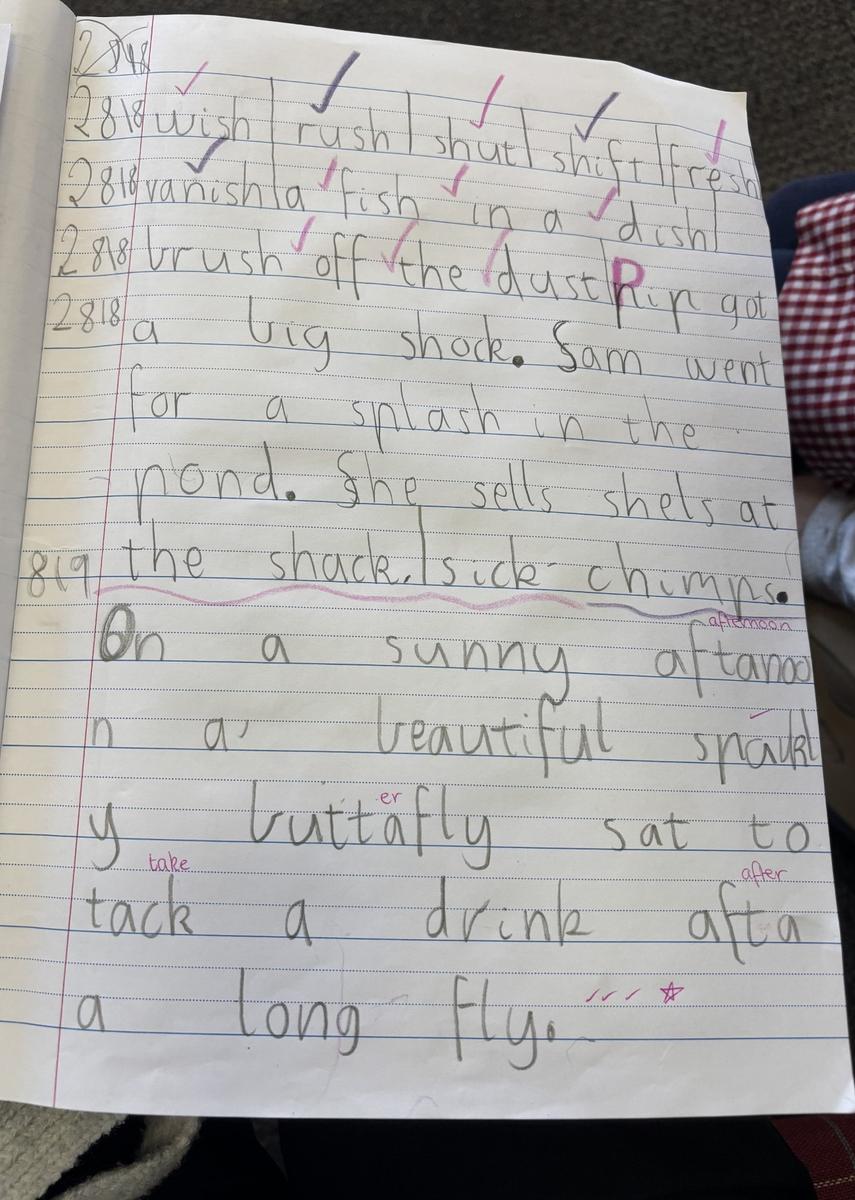 2818
2818 wish | rush | shut | shift | fresh
2818 vanish | a fish in a dish |
2818 brush off the dust | Pip got
2818 a big shock. Sam went
for a splash in the
pond. She sells shels at
the shack. | sick chimps.
819
afternoon
On a sunny aftanoo
n a beautiful spaukl
er
y buttafly sat to
take after
tack a drink afta
a long fly.